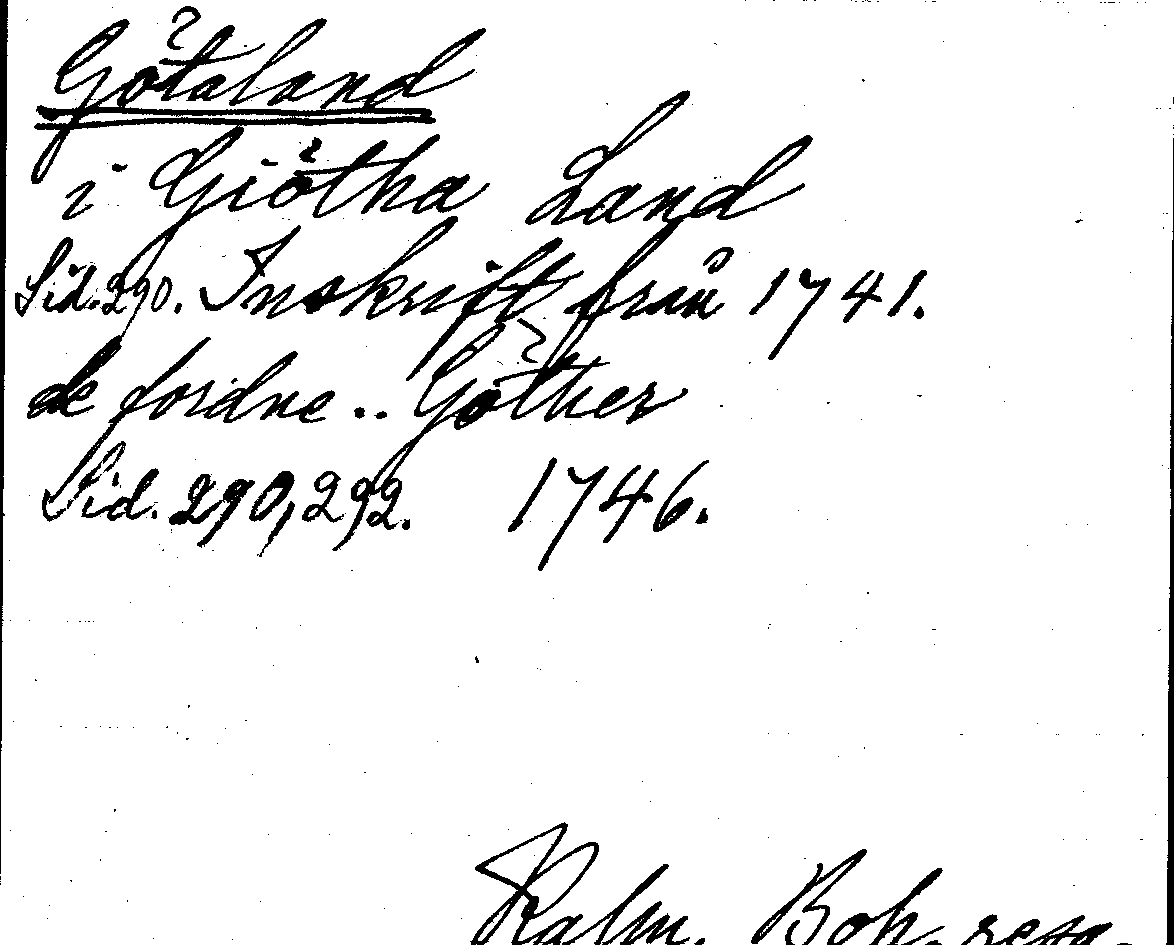 Götaland
i Giötha Land
Sid. 290. Inskrift från 1741.
de fordne .. Göther
Sid. 290, 292. 1746.
Kalm. Boh. resa.